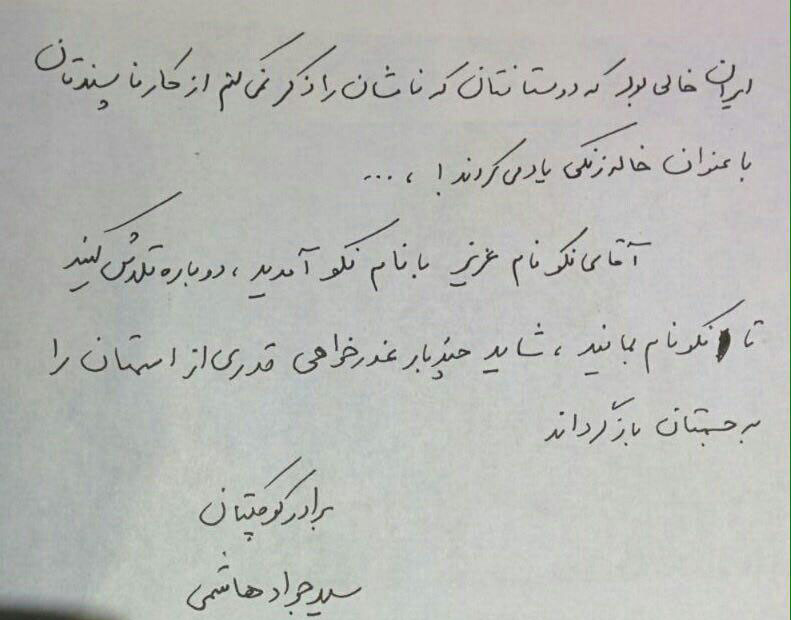 ایران خالی بود که دوستانتان که نامشان را ذکر نمی کنم از کار ناپسندتان
با عنوان خاله زنکی یاد می کردند! ، ...
آقای نکونام عزیز با نام نکو آمدید ، دوباره تلاش کنید
تا نکونام بمانید ، شاید چندبار عذرخواهی قدری از اسمتان را
به جسمتان بازگرداند
برادر کوچکتان
سیدجواد هاشمی